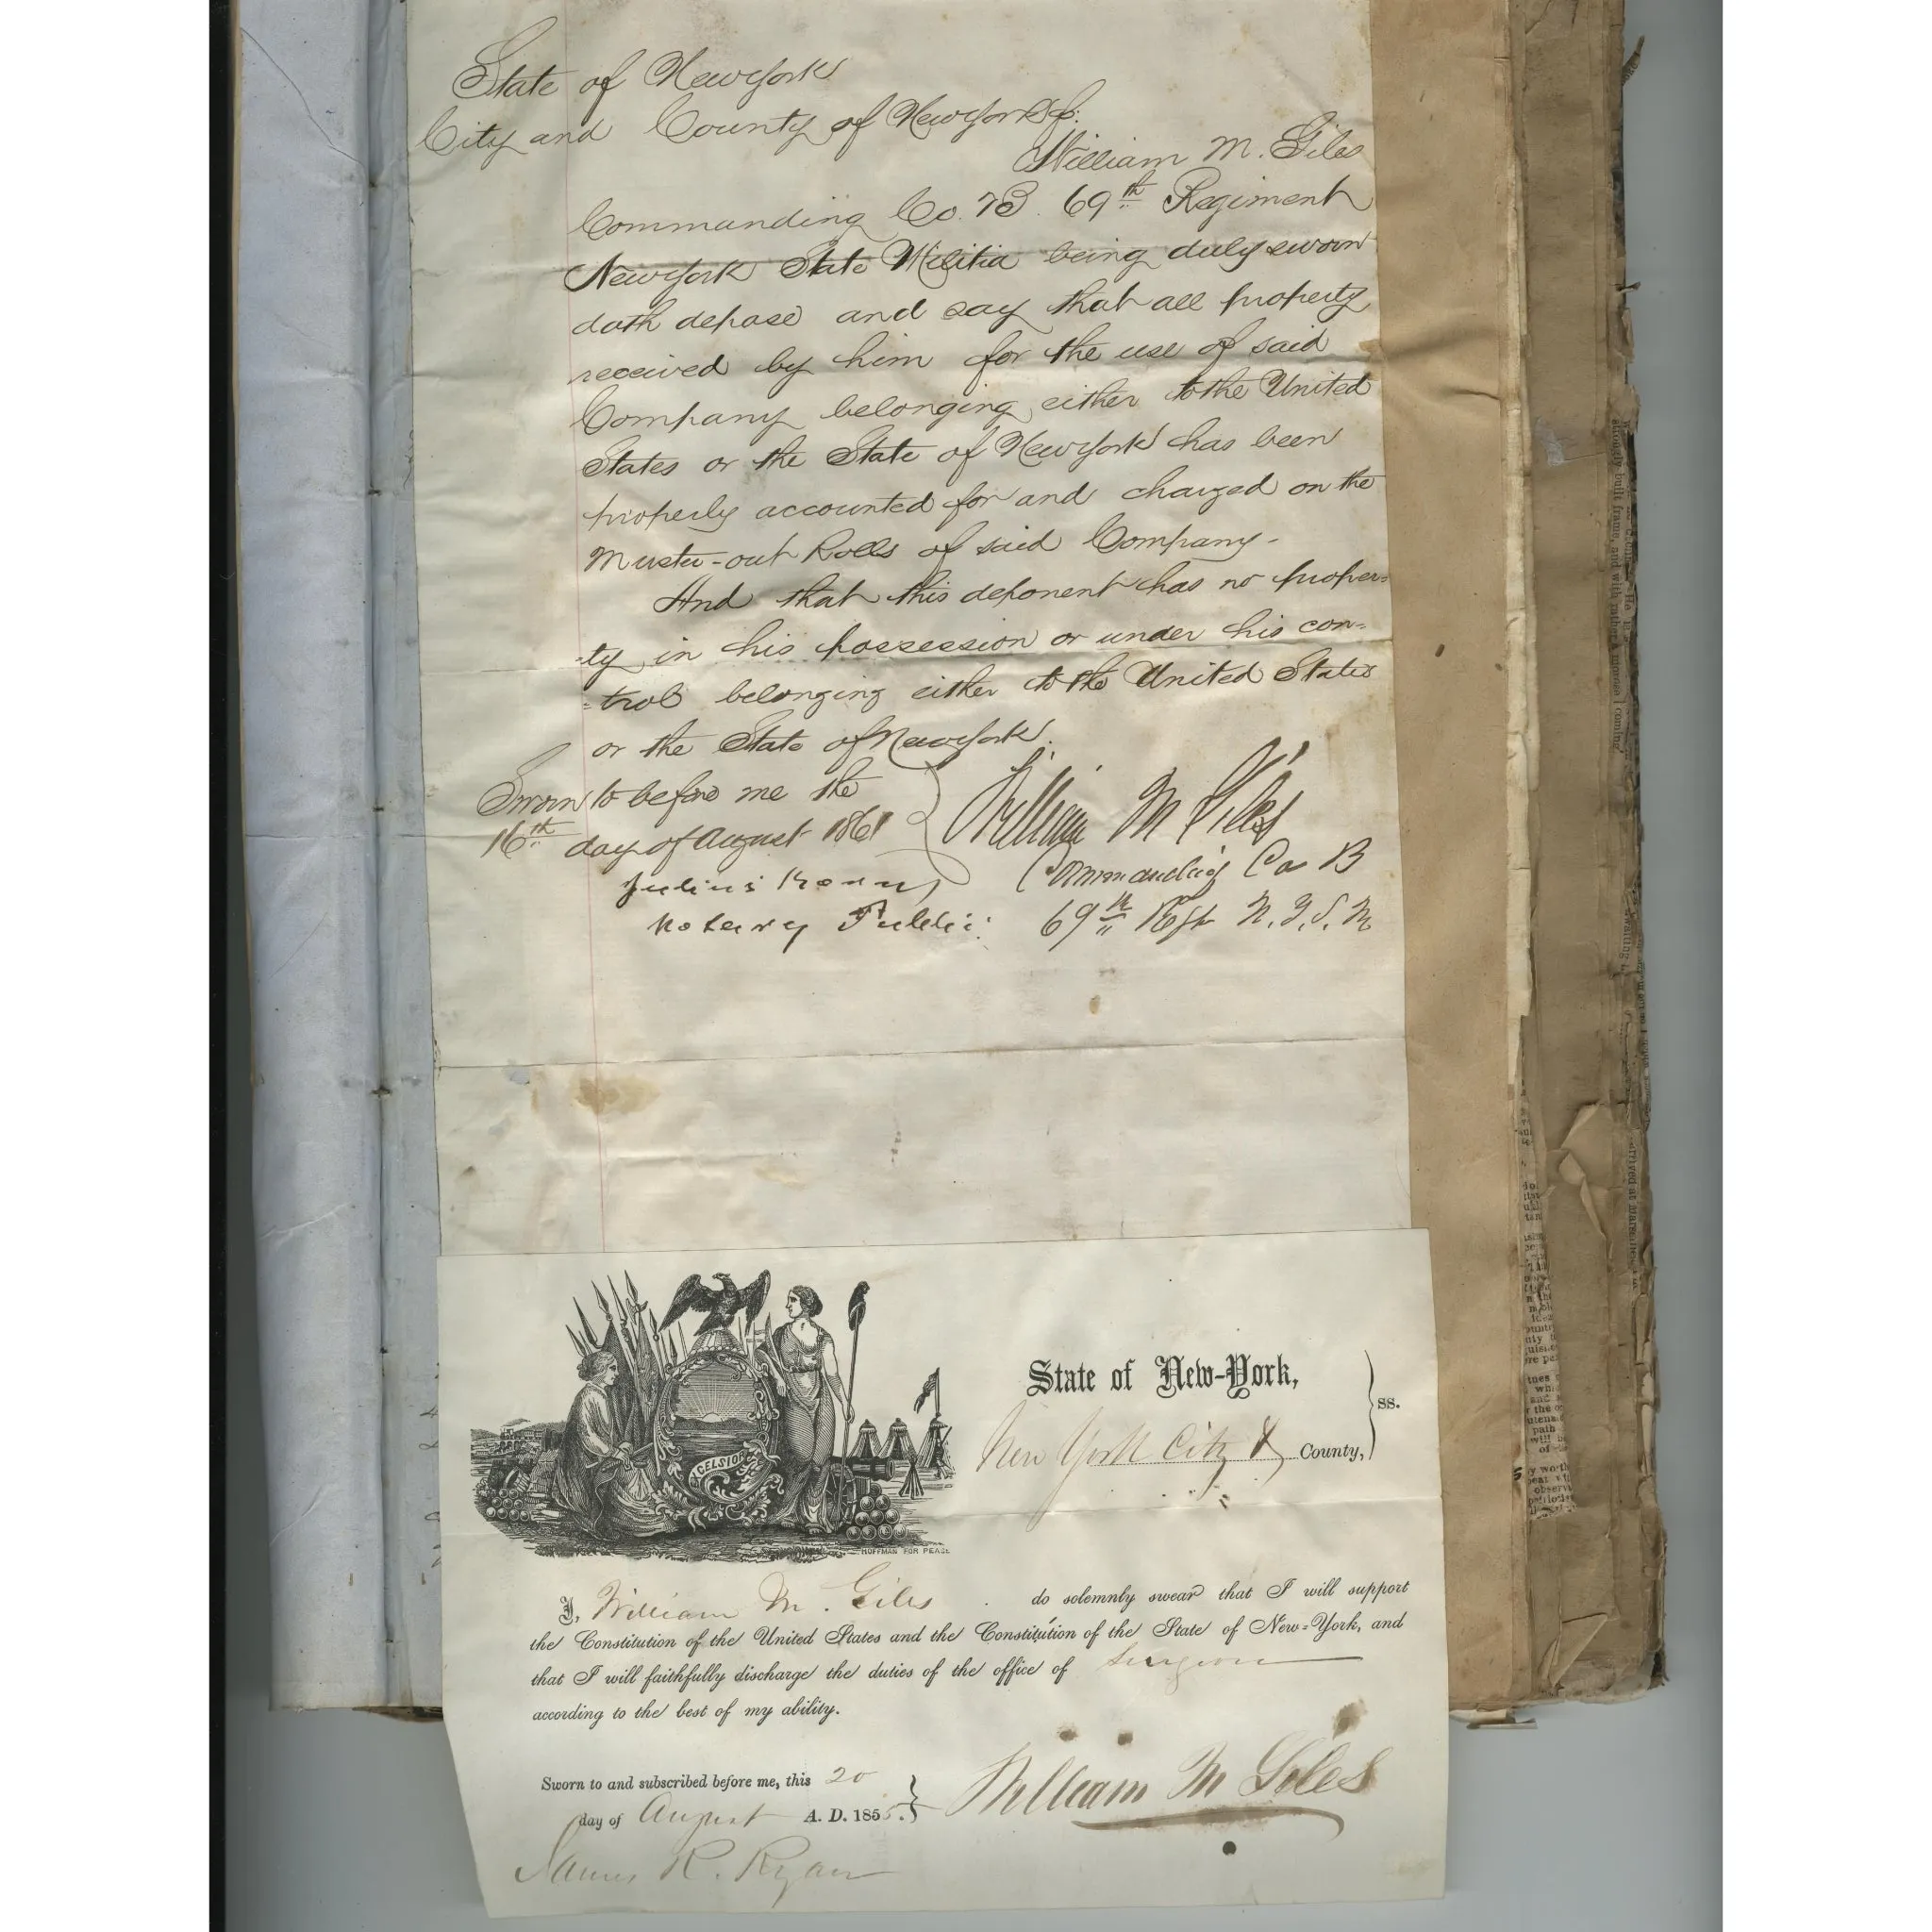 State of New York
City and County of New York ss:
William M. Giles
Commanding Co. B. 69th Regiment
New York State Militia being duly sworn
doth depose and say that all property
received by him for the use of said
Company belonging either to the United
States or the State of New York has been
properly accounted for and charged on the
Muster-out Rolls of said Company-
And that this deponent has no proper=
-ty in his possession or under his con-
=trol belonging either to the United States
or the State of New York.
Sworn to before me the
16th day of August 1861
Julius
Notary Public
William M Giles
Commanding Co B
69th Regt N.Y.S.M
State of New-York,
New York City & County, } ss.
EXCELSIOR
HOFFMAN FOR PEACE
I, William M. Giles do solemnly swear that I will support
the Constitution of the United States and the Constitution of the State of New=York, and
that I will faithfully discharge the duties of the office of Surgeon
according to the best of my ability.
Sworn to and subscribed before me, this 20
day of August A. D. 1855.
William M Giles
James R. Ryan